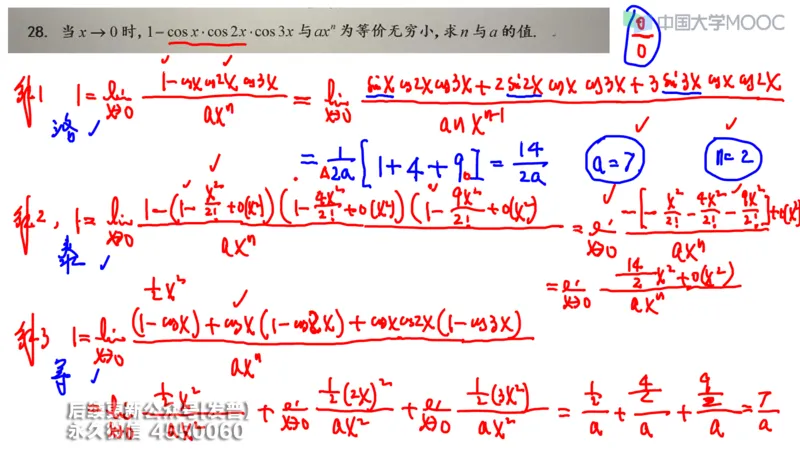 28. 当 x → 0 时, 1 − cos x · cos 2x · cos 3x 与 axⁿ 为等价无穷小, 求 n 与 a 的值.
中国大学MOOC
0/0
解1 1 = lim(x→0) (1 − cosx cos2x cos3x)/(axⁿ) = lim(x→0) (sinx cos2x cos3x + 2 sin2x cosx cos3x + 3 sin3x cosx cos2x)/(an xⁿ⁻¹)
洛 ✓
= 1/2a [1 + 4 + 9] = 14/2a a = 7 n = 2
解2, 1 = lim(x→0) (1 − (1 − x²/2! + o(x²))(1 − 4x²/2! + o(x²))(1 − 9x²/2! + o(x²)))/(axⁿ) = lim(x→0) (−[−x²/2! − 4x²/2! − 9x²/2!] + o(x²))/(axⁿ)
泰 ✓
= lim(x→0) (14/2 x² + o(x²))/(axⁿ)
½x²
解3 1 = lim(x→0) ((1 − cosx) + cosx(1 − cos2x) + cosx cos2x(1 − cos3x))/(axⁿ)
等 ✓
= lim(x→0) ½x²/ax² + lim(x→0) ½(2x)²/ax² + lim(x→0) ½(3x²)/ax² = ½/a + 4/2/a + 9/2/a = 7/a